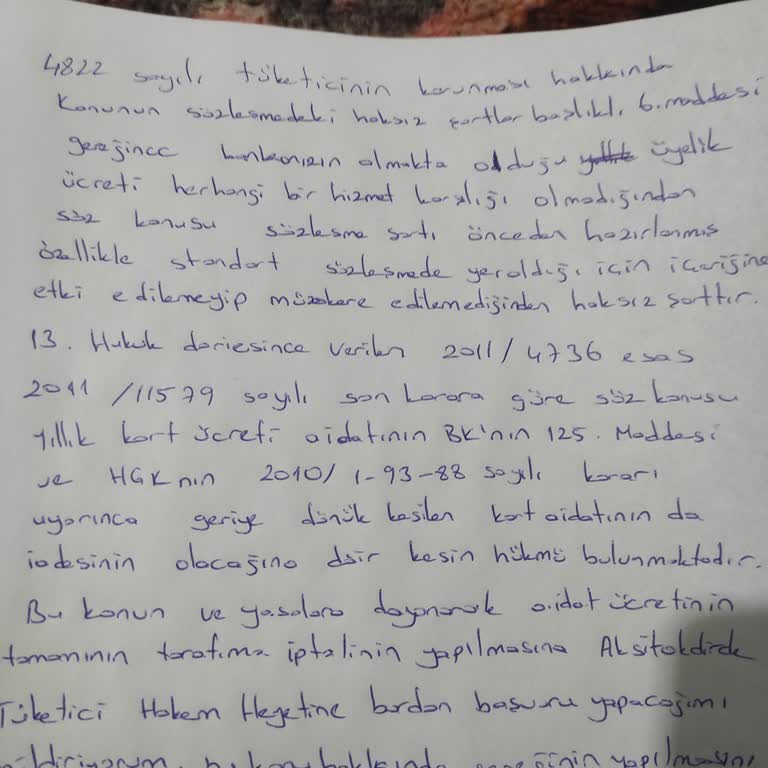 4822 sayılı tüketicinin korunması hakkında
Konunun sözleşmedeki haksız şartlar başlıklı 6.maddesi
gereğince bankanızın almakta olduğu üyelik
ücreti herhangi bir hizmet karşılığı olmadığından
söz konusu sözleşme şartı önceden hazırlanmış
özellikle standart sözleşmede yeraldığı için içeriğine
etki edilemeyip müzakere edilemediğinden haksız şarttır.
13. Hukuk dariesince verilen 2011/4736 esas
2011/11579 sayılı son karara göre söz konusu
yıllık kart ücreti aidatının BK'nın 125. Maddesi
ve HGK nın 2010/1-93-88 sayılı kararı
uyarınca geriye dönük kesilen kart aidatının da
iadesinin olacağına dair kesin hükmü bulunmaktadır.
Bu konun ve yasalara dayanarak aidat ücretinin
tamamının tarafıma iptalinin yapılmasına Aksitakdirde
Tüketici Hakem Heyetine burdan başuru yapacağımı
bildiriyorum yapılmasını